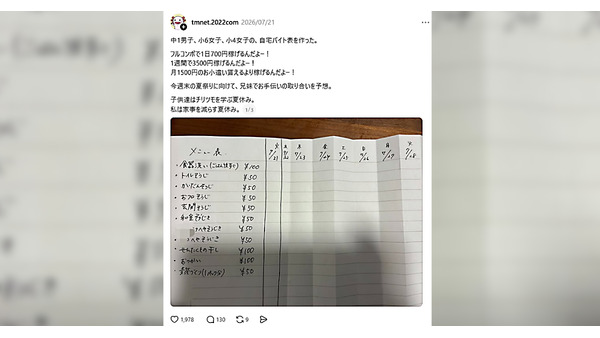 tmnet.2022com 2026/07/21
中1男子、小6女子、小4女子の、自宅バイト表を作った。
フルコンボで1日700円稼げるんだよー！
1週間で3500円稼げるんだよー！
月1500円のお小遣い貰えるより稼げるんだよー！
今週末の夏祭りに向けて、兄妹でお手伝いの取り合いを予想。
子供達はチリツモを学ぶ夏休み。
私は家事を減らす夏休み。 1/3
メニュー表
・食器洗い(ごはん後すぐ) ¥100
・トイレそうじ ¥50
・かいだんそうじ ¥50
・おフロそうじ ¥50
・玄関そうじ ¥50
・和室そうじき ¥50
へやそうじき ¥50
・へやそうじき ¥50
・せんたくもの干し ¥100
・おつかい ¥100
¥50
火 7/21
7/22
木 7/23
金 7/24
土 7/25
日 7/26
月 7/27
火 7/28
1,978 130 9